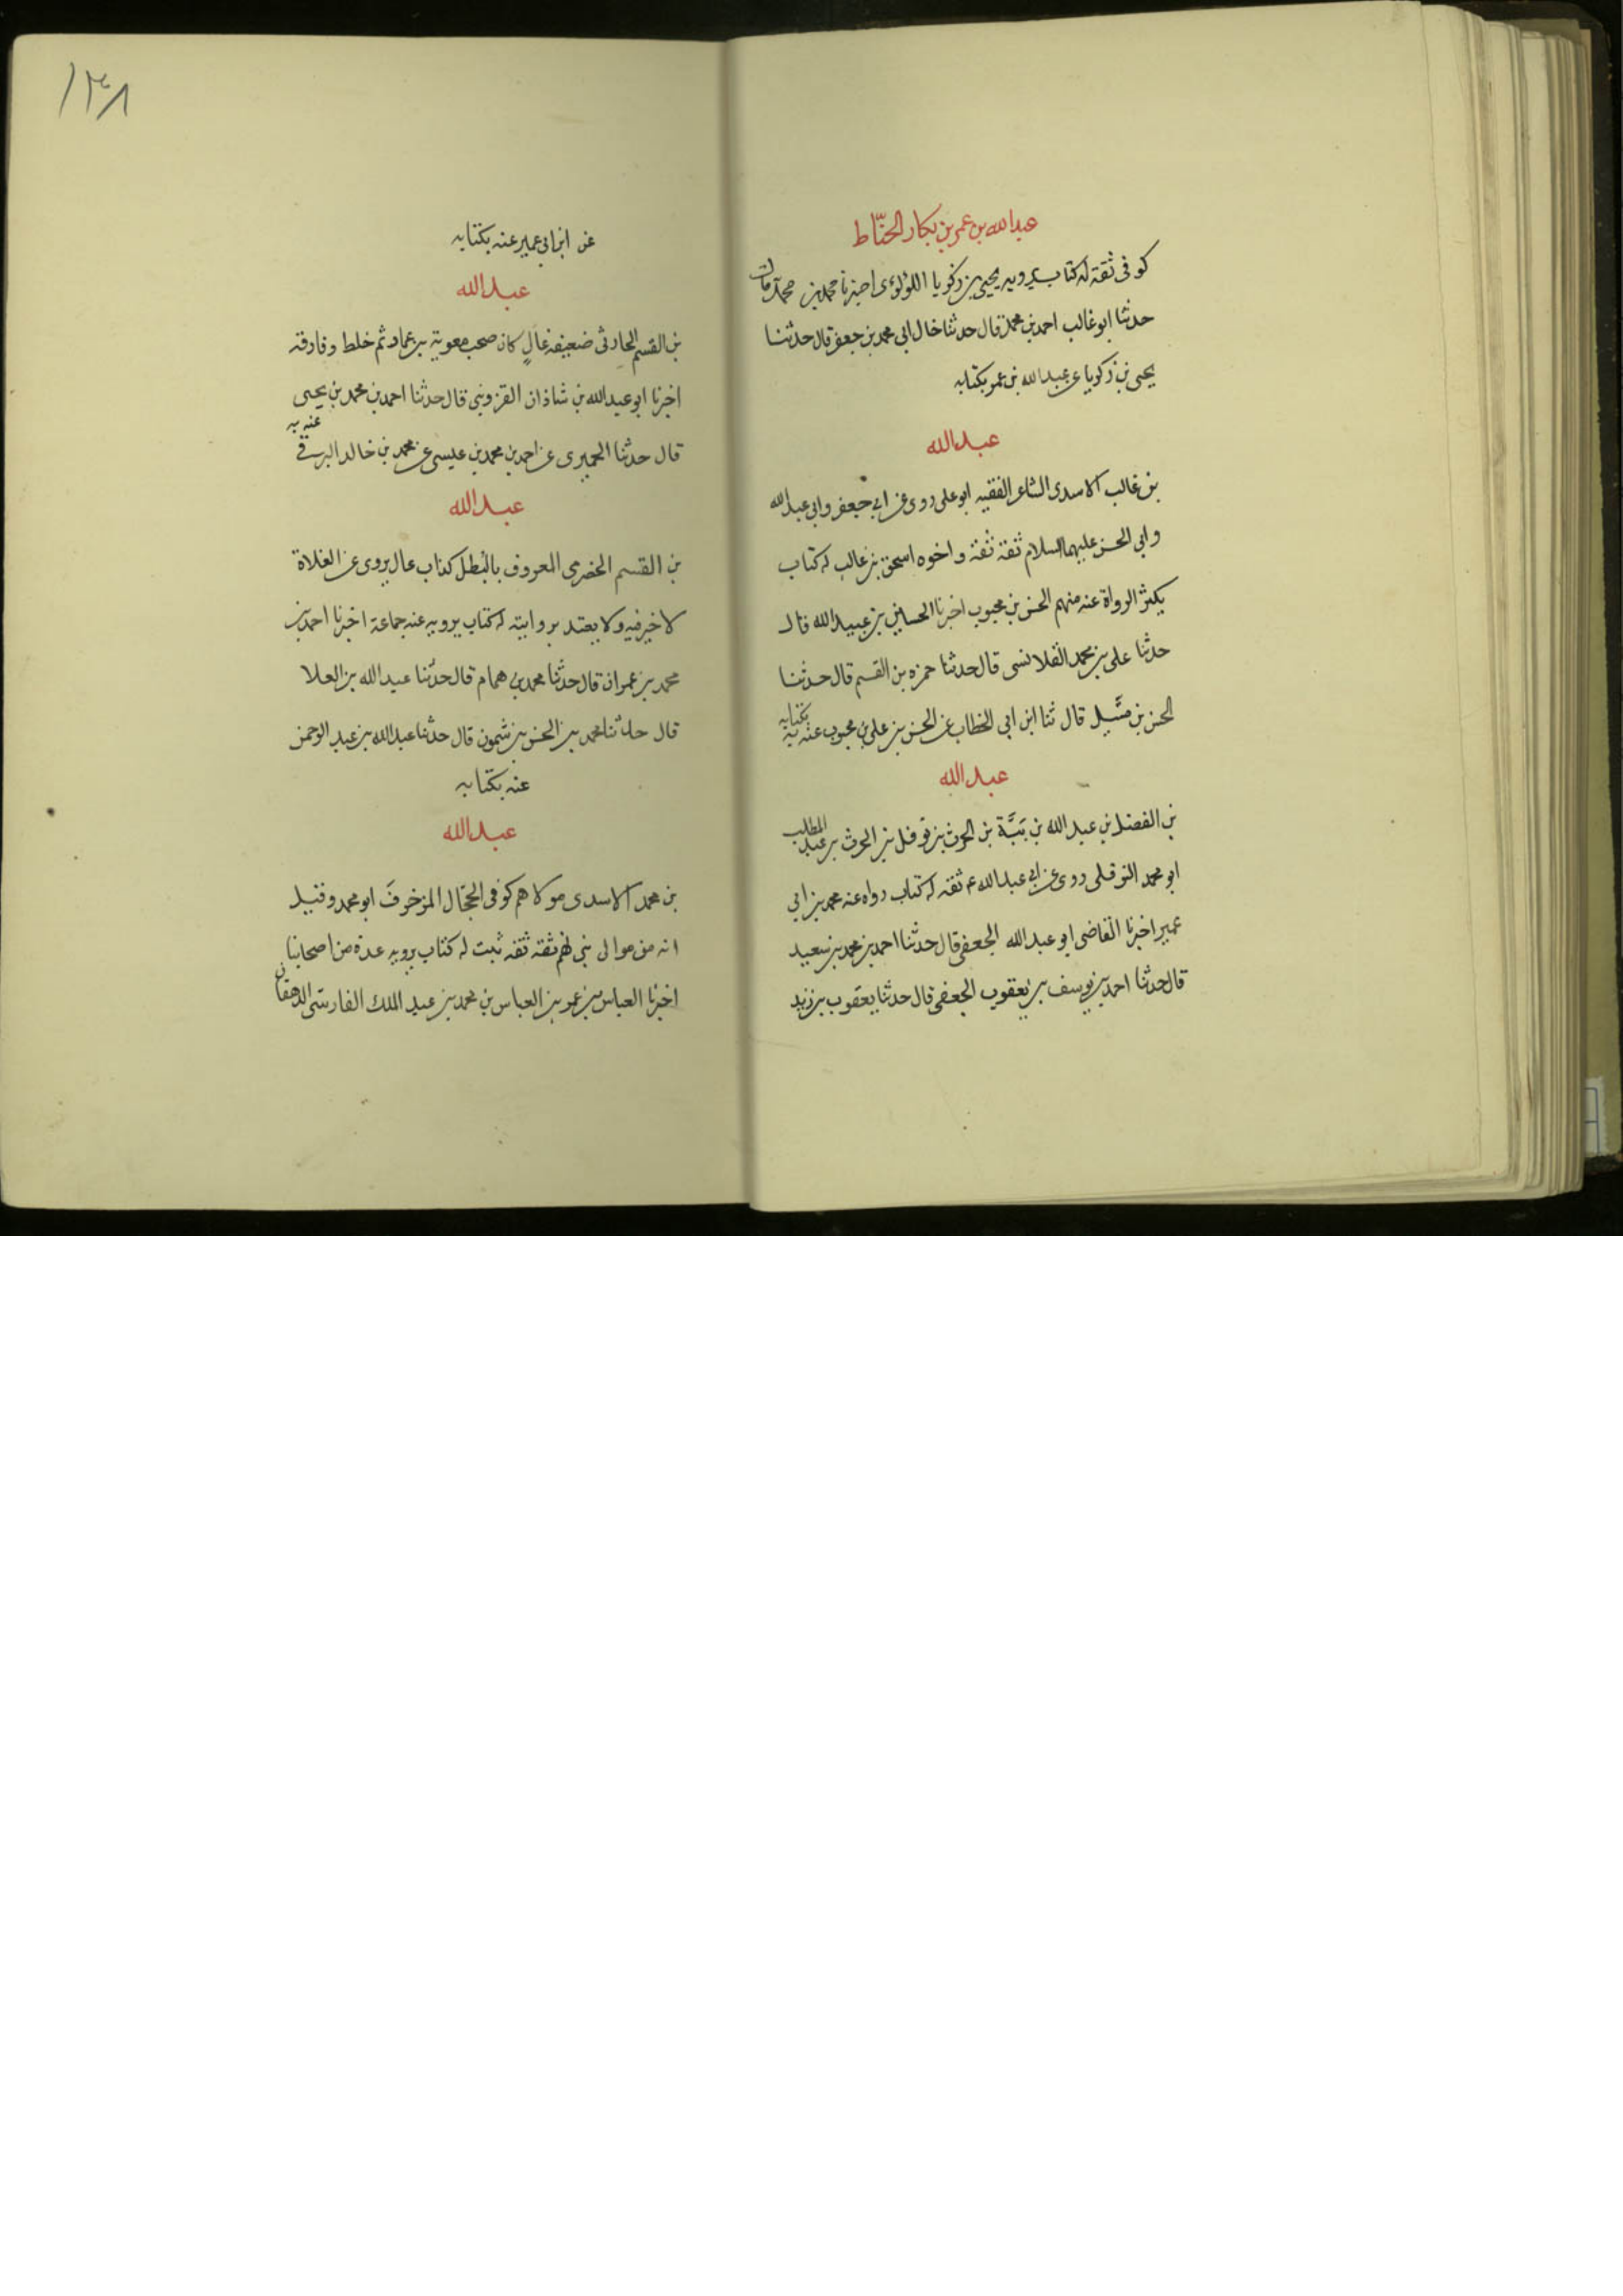 عبدالله بن عمر بن بكار الحنّاط
كوفى ثقة له كتاب يرويه يحيى بن زكويا اللؤلؤى اخبرنا محمد بن محمد قال
حدثنا ابو غالب احمد بن محمد قال حدثنا خال ابى محمد بن جعفر قال حدثنا
يحيى بن زكويا عن عبدالله بن عمر بكتابه
عبدالله
بن غالب الاسدى الشاعر الفقيه ابو على روى عن ابى جعفر وابى عبدالله
وابى الحسن عليهما السلام ثقة ثقة واخوه اسحق بن غالب له كتاب
يكثر الرواة عنه منهم الحسن بن محبوب اخبرنا الحسين بن عبيدالله قال
حدثنا على بن محمد القلانسى قال حدثنا حمزه بن القسم قال حدثنا
الحسن بن متّيل قال ثنا ابن ابى الخطاب عن الحسن بن على بن محبوب عنه به بكتابه
عبدالله
بن الفضل بن عبدالله بن بَبَّة بن الحرث بن نوفل بن الحرث بن عبد المطلب
ابو محمد النوفلى روى عن ابى عبدالله ع ثقه له كتاب رواه عنه محمد بن ابى
عمير اخبرنا القاضى ابو عبدالله الجعفى قال حدثنا احمد بن محمد بن سعيد
قال حدثنا احمد بن يوسف بن يعقوب الجعفى قال حدثنا يعقوب بن زيد
١٣٨
عن ابن ابى عمير عنه بكتابه
عبدالله
بن القسم الحارثى ضعيف غالٍ كان صحب معوية بن عمار ثم خلط وفارقه
اخبرنا ابو عبدالله بن شاذان القزوينى قال حدثنا احمد بن محمد بن يحيى
قال حدثنا الحميرى عن احمد بن محمد بن عيسى عن محمد بن خالد البرقى عنه به
عبدالله
بن القسم الحضرمى المعروف بالبطل كذاب غال يروى عن الغلاة
لا خير فيه ولا يعتد بروايته له كتاب يرويه عنه جماعة اخبرنا احمد بن
محمد بن عمران قال حدثنا محمد بن همام قال حدثنا عبدالله بن العلا
قال حدثنا محمد بن الحسن بن شمون قال حدثنا عبدالله بن عبد الرحمن
عنه بكتابه
عبدالله
بن محمد الاسدى مولاهم كوفى الحجّال المزخرف ابو محمد وقيل
انه من موالى بنى تيم ثقة ثقة ثبت له كتاب يرويه عدة من اصحابنا
اخبرنا العباس بن عمر بن العباس بن محمد بن عبد الملك الفارسى الدهقان